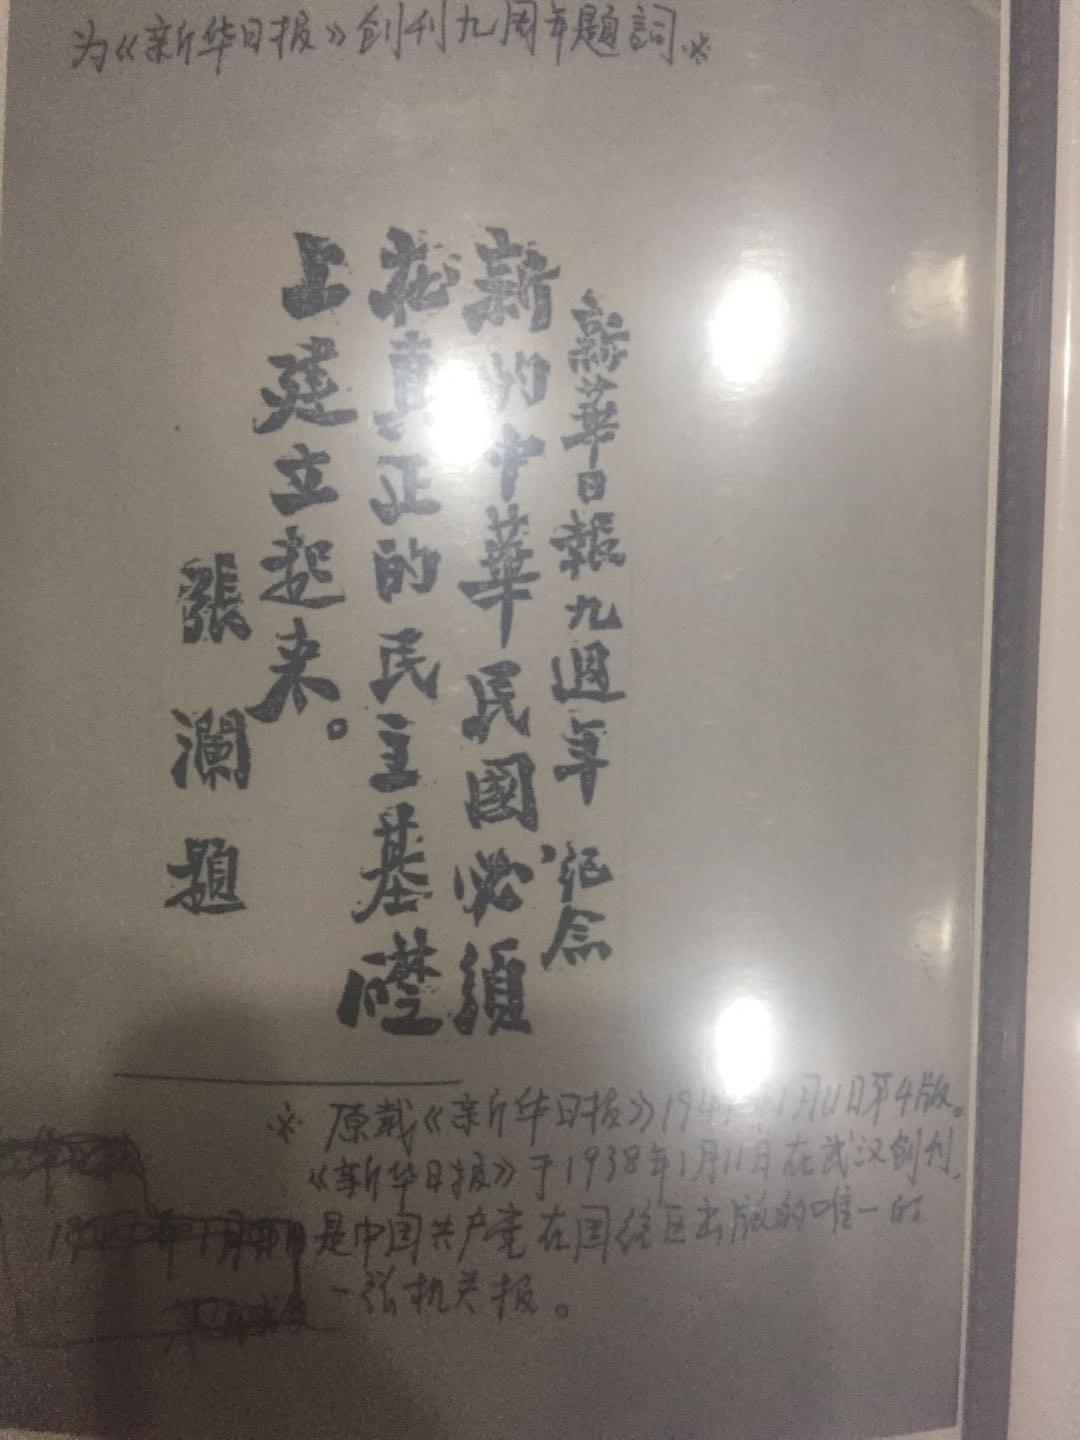 为《新华日报》创刊九周年题詞※
新華日報九週年紀念
新的中華民國必須
在真正的民主基礎
上建立起来。
張瀾題
※ 原载《新华日报》194 年1月11日第4版。
《新华日报》于1938年1月11日在武汉创刊,
是中国共产党在国统区出版的唯一的
一张机关报。